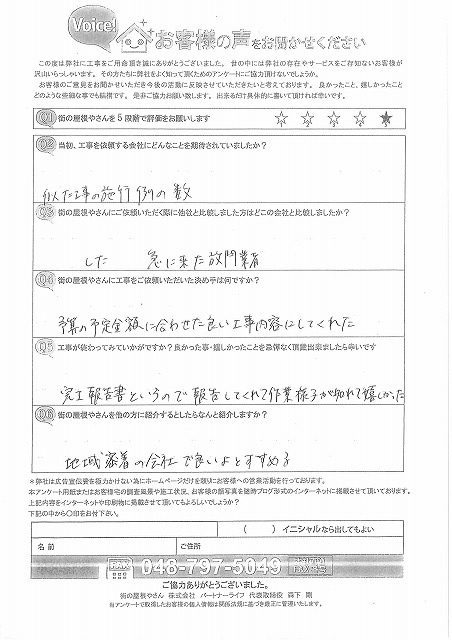 Voice!
お客様の声をお聞かせください
この度は弊社に工事をご用命頂き誠にありがとうございました。世の中には弊社の存在やサービスをご存知ないお客様が
沢山いらっしゃいます。その方たちに弊社をよく知って頂くためのアンケートにご協力頂けないでしょうか。
お客様のご意見をお聞かせいただき今後の活動に反映させていただきたいと考えております。良かったこと、嬉しかったこと
どのような些細な事でも結構です。是非ご協力お願い致します。出来るだけ具体的に書いて頂ければ幸いです。
Q1 街の屋根やさんを5段階で評価をお願いします
1 2 3 4 5
Q2 当初、工事を依頼する会社にどんなことを期待されていましたか?
似た工事の施行例の数
Q3 街の屋根やさんにご依頼いただく際に他社と比較しました方はどこの会社と比較しましたか?
した 急に来た訪問業者
Q4 街の屋根やさんに工事をご依頼いただいた決め手は何ですか?
予算の予定金額に合わせた良い工事内容にしてくれた
Q5 工事が終わってみていかがですか?良かった事・嬉しかったことを忌憚なく頂戴出来ましたら幸いです
完工報告書というので報告してくれて作業様子が知れて嬉しかった
Q6 街の屋根やさんを他の方に紹介するとしたらなんと紹介しますか?
地域密着の会社で良いよとすすめる
※弊社は広告宣伝費を極力かけない為にホームページだけを頼りにお客様への営業活動を行っております。
本アンケート用紙またはお客様宅の調査風景や施工状況、お客様の顔写真を随時ブログ形式のインターネットに掲載させて頂いております。
上記内容をインターネットや印刷物に掲載させて頂いてもよろしいでしょうか?
下記の中から〇印をお付下さい。
( ) イニシャルなら出してもよい
名前 ご住所
FAX 048-797-5049
ご協力ありがとうございました。
街の屋根やさん 株式会社 パートナーライフ 代表取締役 森下 剛
当アンケートで取得したお客様の個人情報は関係法規に基づき厳正に管理いたします。